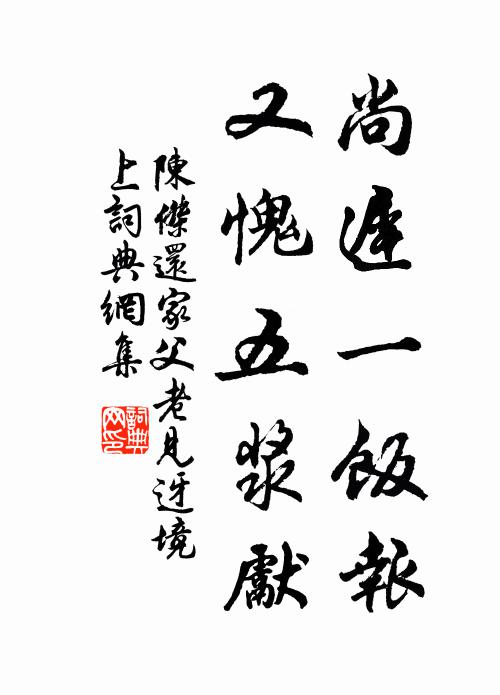 尚遲一飯報
又愧五漿獻
陳傑還家父老見迓境
上詞典網集
詞典
网印